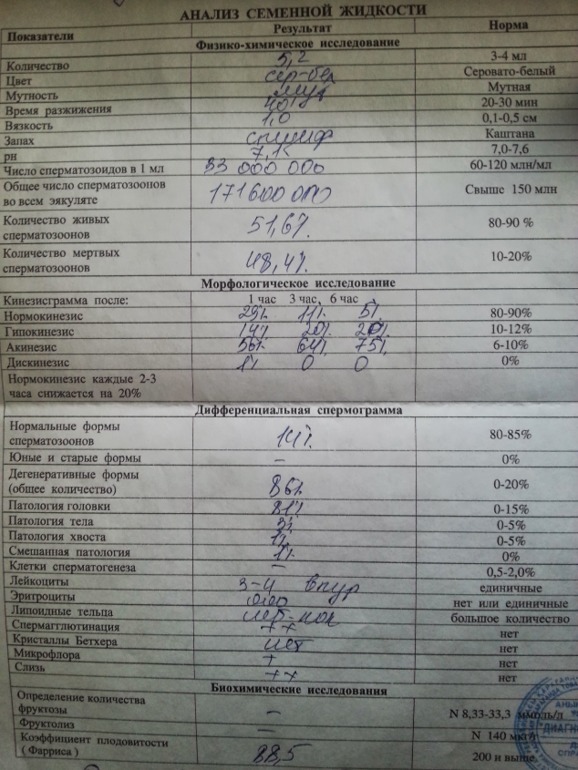 АНАЛИЗ СЕМЕННОЙ ЖИДКОСТИ
Показатели Результат Норма
Физико-химическое исследование
Количество 5,2 3-4 мл
Цвет сер-бел Серовато-белый
Мутность мут Мутная
Время разжижения 40' 20-30 мин
Вязкость 1,0 0,1-0,5 см
Запах специф Каштана
рн 7,1 7,0-7,6
Число сперматозоидов в 1 мл 33 000 000 60-120 млн/мл
Общее число сперматозоонов
во всем эякуляте 171600 000 Свыше 150 млн
Количество живых
сперматозоонов 51,6% 80-90 %
Количество мертвых
сперматозоонов 48,4% 10-20%
Морфологическое исследование
Кинезисграмма после: 1 час 3 час, 6 час
Нормокинезис 29% 11% 5% 80-90%
Гипокинезис 14% 20% 20% 10-12%
Акинезис 56% 64% 75% 6-10%
Дискинезис 1% 0 0 0%
Нормокинезис каждые 2-3
часа снижается на 20%
Дифференциальная спермограмма
Нормальные формы
сперматозоонов 14% 80-85%
Юные и старые формы – 0%
Дегенеративные формы
(общее количество) 86% 0-20%
Патология головки 81% 0-15%
Патология тела 3% 0-5%
Патология хвоста 1% 0-5%
Смешанная патология 1% 0%
Клетки сперматогенеза – 0,5-2,0%
Лейкоциты 3-4 единичные
Эритроциты нет или единичные
Липоидные тельца большое количество
Спермагглютинация ++ нет
Кристаллы Бетхера нет нет
Микрофлора + нет
Слизь ++ нет
Биохимические исследования
Определение количества
фруктозы – N 8,33-33,3 ммоль/л
Фруктолиз – N 140 мкг/
Коэффициент плодовитости
( Фарриса ) 88,5 200 и выше